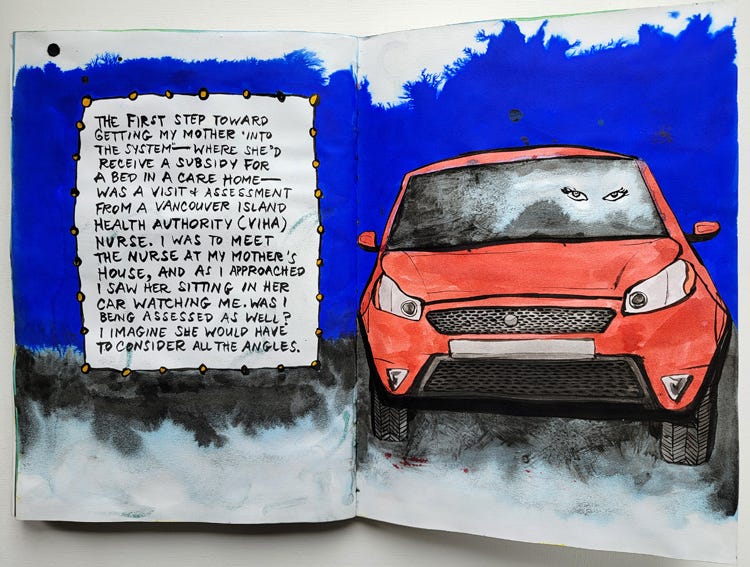 THE FIRST STEP TOWARD
GETTING MY MOTHER 'INTO
THE SYSTEM—WHERE SHE'D
RECEIVE A SUBSIDY FOR
A BED IN A CARE HOME—
WAS A VISIT & ASSESSMENT
FROM A VANCOUVER ISLAND
HEALTH AUTHORITY (VIHA)
NURSE. I WAS TO MEET
THE NURSE AT MY MOTHER'S
HOUSE, AND AS I APPROACHED
I SAW HER SITTING IN HER
CAR WATCHING ME. WAS I
BEING ASSESSED AS WELL?
I IMAGINE SHE WOULD HAVE
TO CONSIDER ALL THE ANGLES.